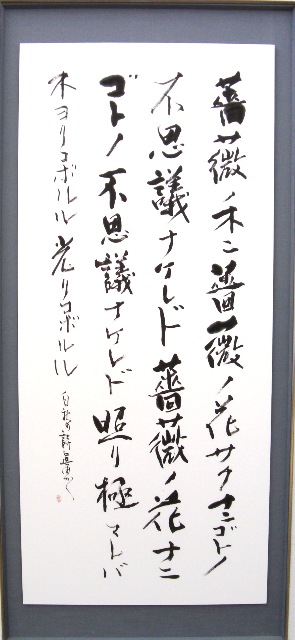 薔薇ノ木ニ薔薇ノ花サクナニゴトノ
不思議ナケレド薔薇ノ花ナニ
ゴトノ不思議ナケレド照リ極マレバ
木ヨリコボルル光リコボルル 白秋の詩